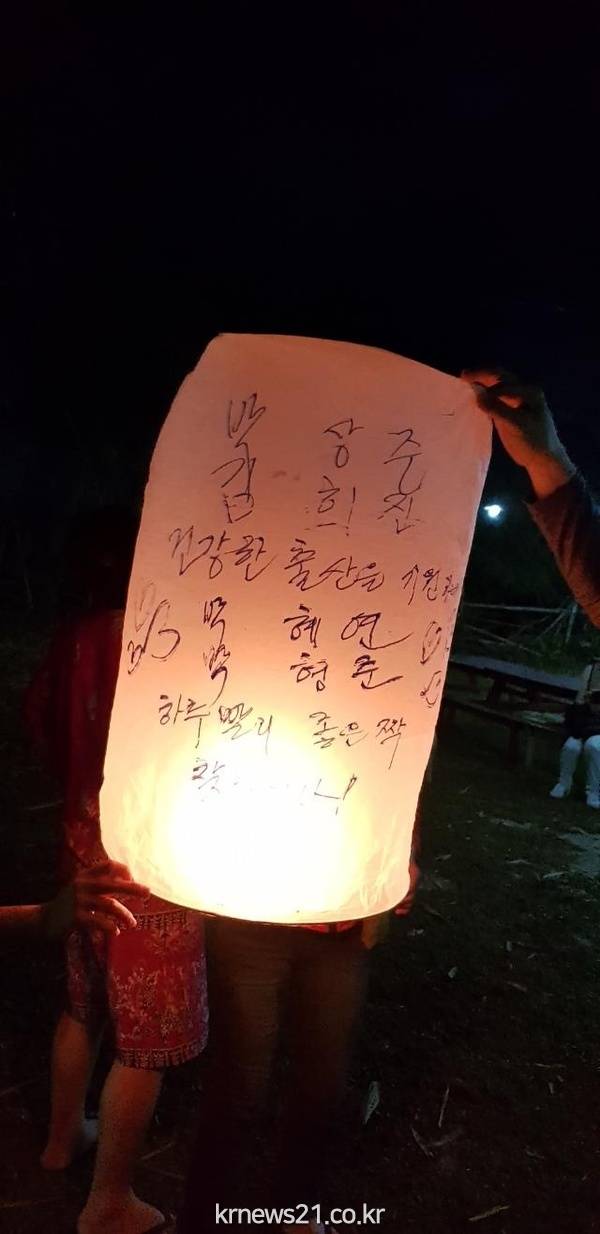 박 상 준
김 희 진
건강한 출산을 기원
박 혜 연
박 형 준
하루빨리 좋은 짝
krnews21.co.kr